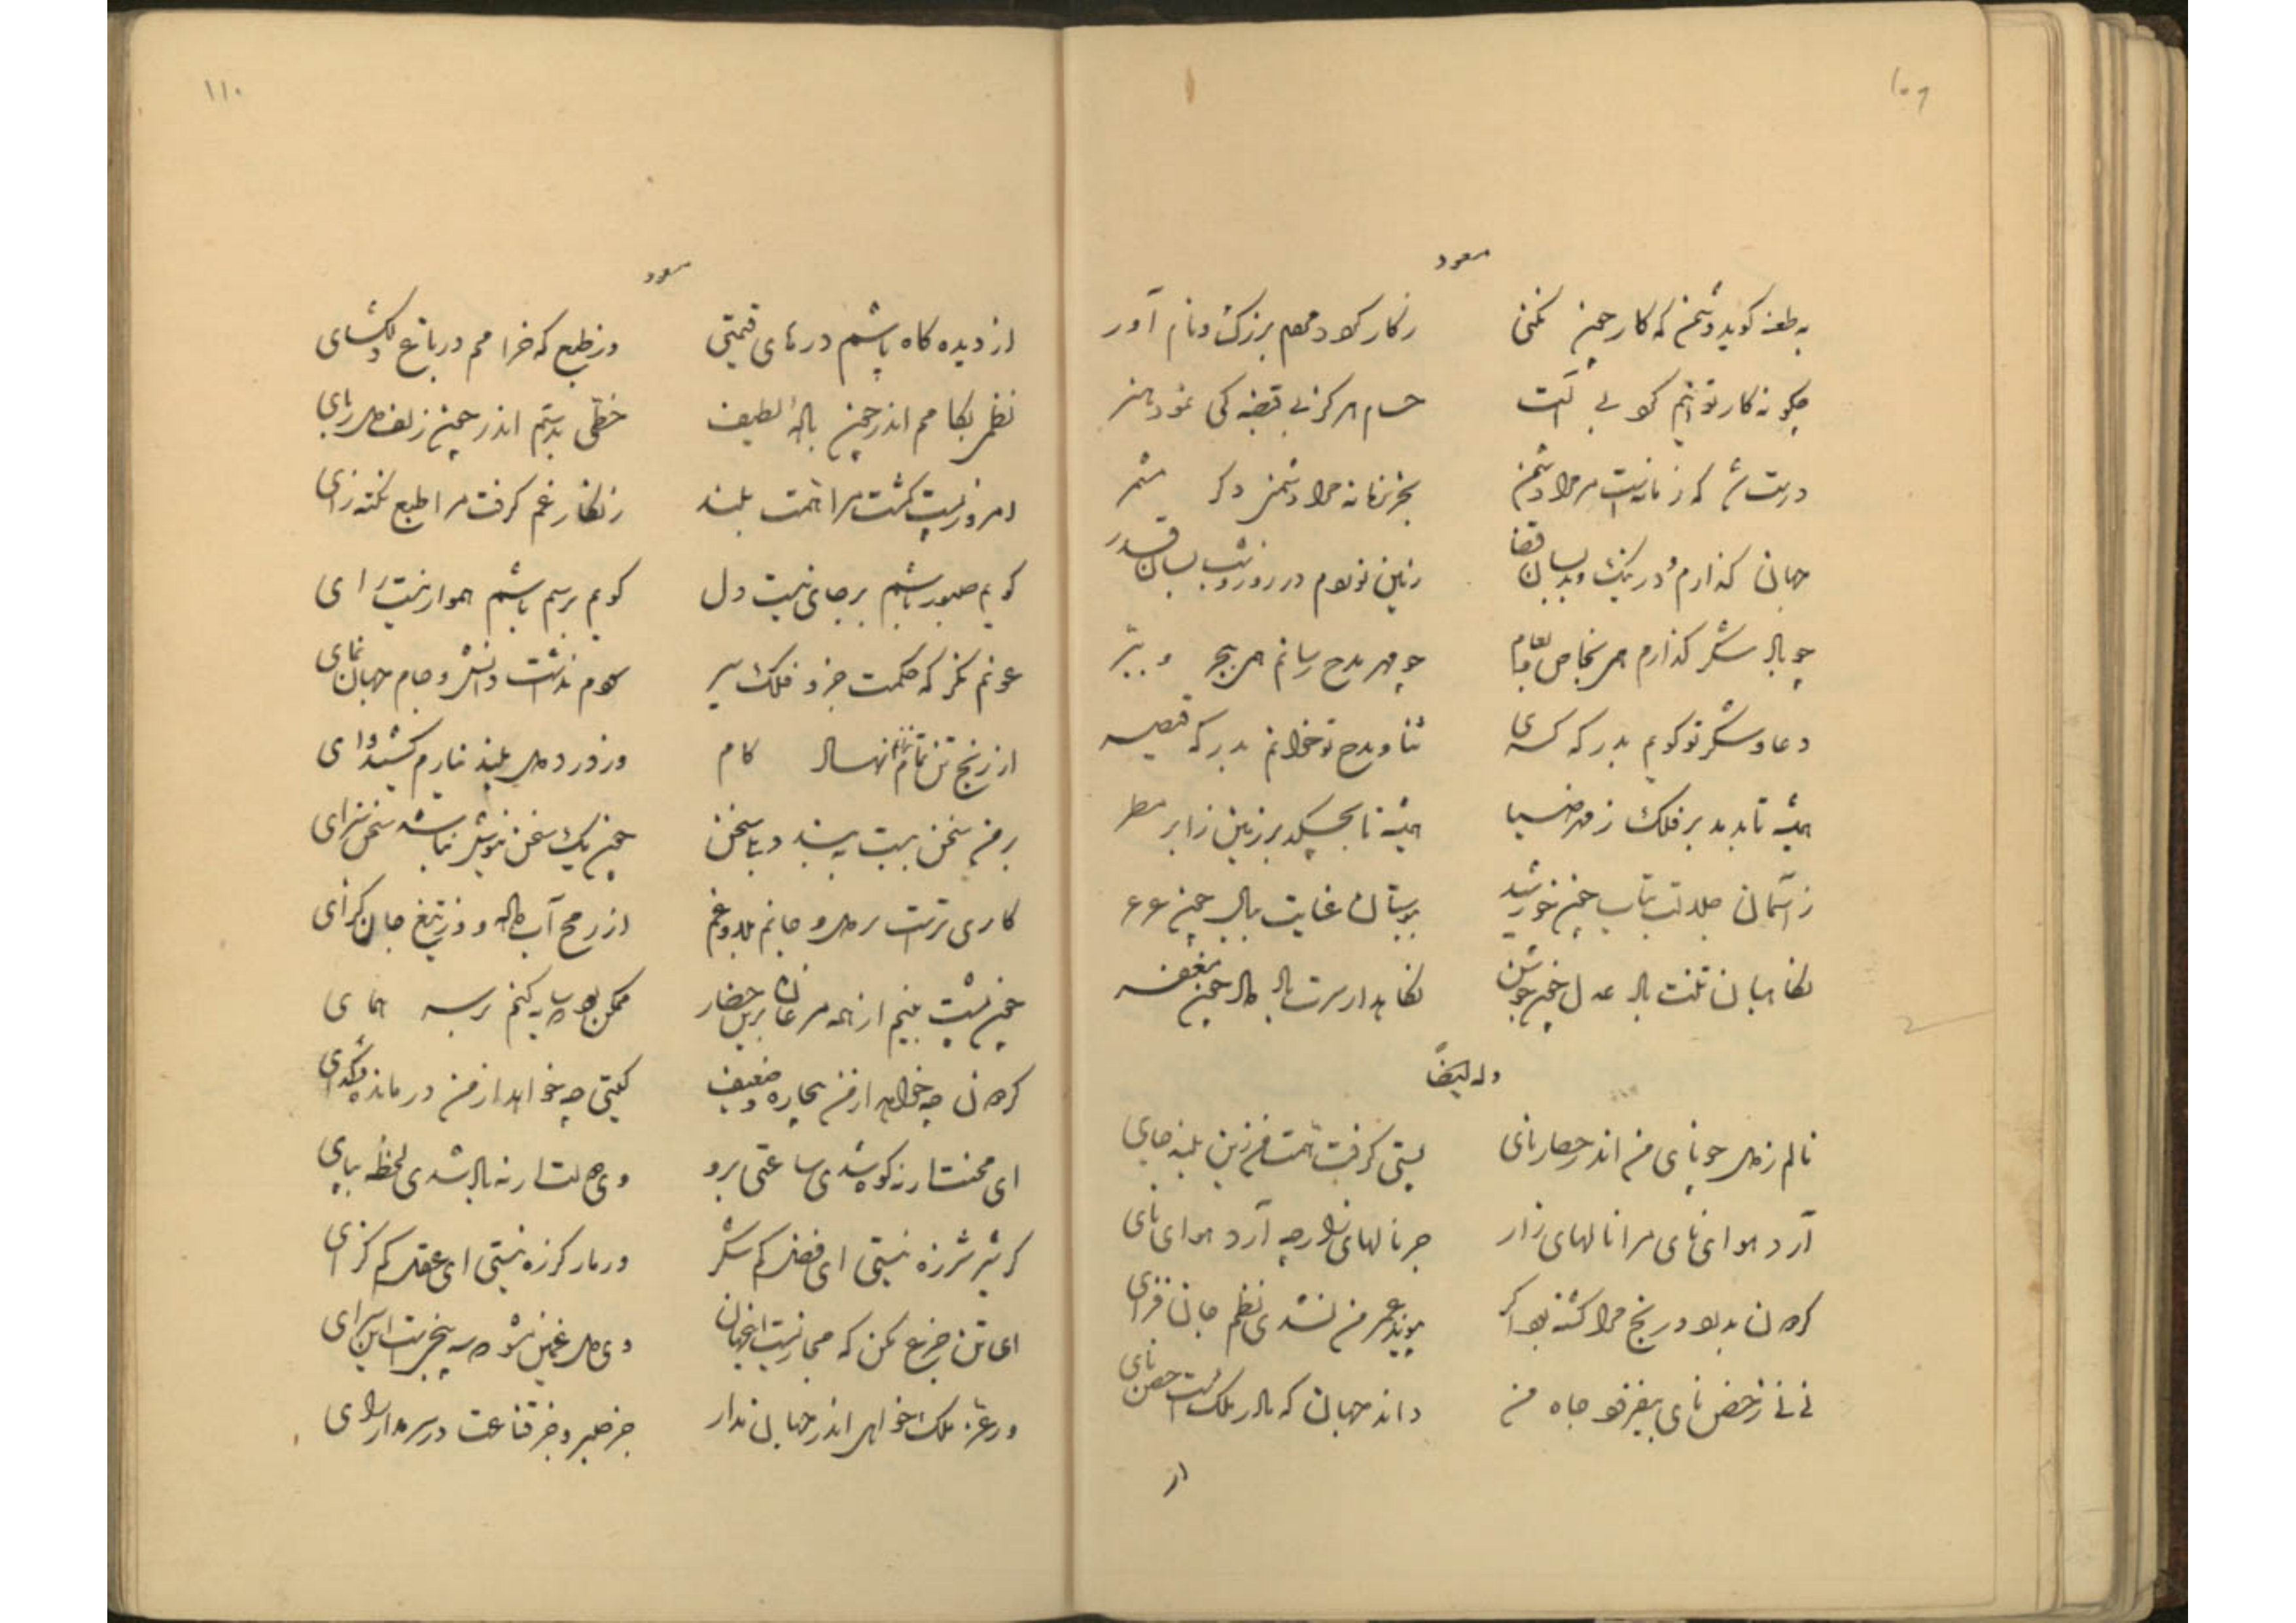 ۱۰۹
مسعود
به طعنه کوید دشمن که کار چون نکنی ز کار کردد مردم بزرک و نام آور
چکونه کار توانم کرد بی آلت حسام هرکز بی قبضه کی نمود هنر
درست شد که زمانه‌ست مر مرا دشمن بجز زمانه مرا دشمن دکر مشمر
جهان کذارم در نیک و بد بسان قضا زمین نوردم در روز و شب بسان قدر
چو باد شکر کذارم همی بخاص و بعام چو مهر مدح رسانم همی ببحر و ببر
دعا و شکر تو کویم بدرکه کسری ثنا و مدح تو خوانم بدرکه قیصر
همیشه تا بدمد بر فلک ز مهر ضیا همیشه تا بچکد بر زمین ز ابر مطر
ز آسمان جلالت بتاب چون خورشید ببوستان عنایت ببال چون عرعر
نکاهبان تنت باد عدل چون جوشن نکاهدار سرت باد داد چون مغفر
وله ایضاً
نالم ز دل چو نای من اندر حصار نای پستی کرفت همت من زین بلند جای
آرد هوای نای مرا نالهای زار جز نالهای زار چه آرد هوای نای
کردون بدرد و رنج مرا کشته بود اکر پیوند عمر من نشدی نظم جان فزای
نی نی ز حصن نای بیفزود جاه من داند جهان که مادر ملک است حصن نای
از
۱۱۰
مسعود
از دیده کاه پاشم درهای قیمتی وز طبع که خرامم در باغ دلکشای
نظمی بکامم اندر چون بادهٔ لطیف خطی بدستم اندر چون زلف دلربای
امروز پست کشت مرا همت بلند زنکار غم کرفت مرا طبع نکته زای
کویم صبور باشم برجای نیست دل کویم برسم باشم هموار نیست رای
عونم نکرد همت دور فلک سودم نداشت دانش و جام جهان نمای
از رنج تن تمام نیارم نهاد کام وز درد دل بلند نیارم کشید وای
بر من سخن ببست ببندد بلی سخن چون یک سخن نیوش نباشد سخن سرای
کاری‌تر است بر دل و جانم بلا و غم از رمح آب داده و از تیغ جان کزای
چون پشت بینم از همه مرغان برین حصار ممکن بود که سایه کند بر سرم همای
کردون چه خواهد از من بیچارهٔ ضعیف کیتی چه خواهد از من درماندهٔ کدای
ای محنت ار نه کوه شدی ساعتی برو وی دولت ار نه باد شدی لحظه بپای
کر شیر شرزه نیستی ای فضل کم شکر ور مار کرزه نیستی ای عقل کم کزای
ای تن جزع مکن که مجازیست اینجهان وی دل غمین مشو که سپنجیست این سرای
ور عز و ملک خواهی اندر جهان مدار جز صبر و جز قناعت دستور و رهنمای